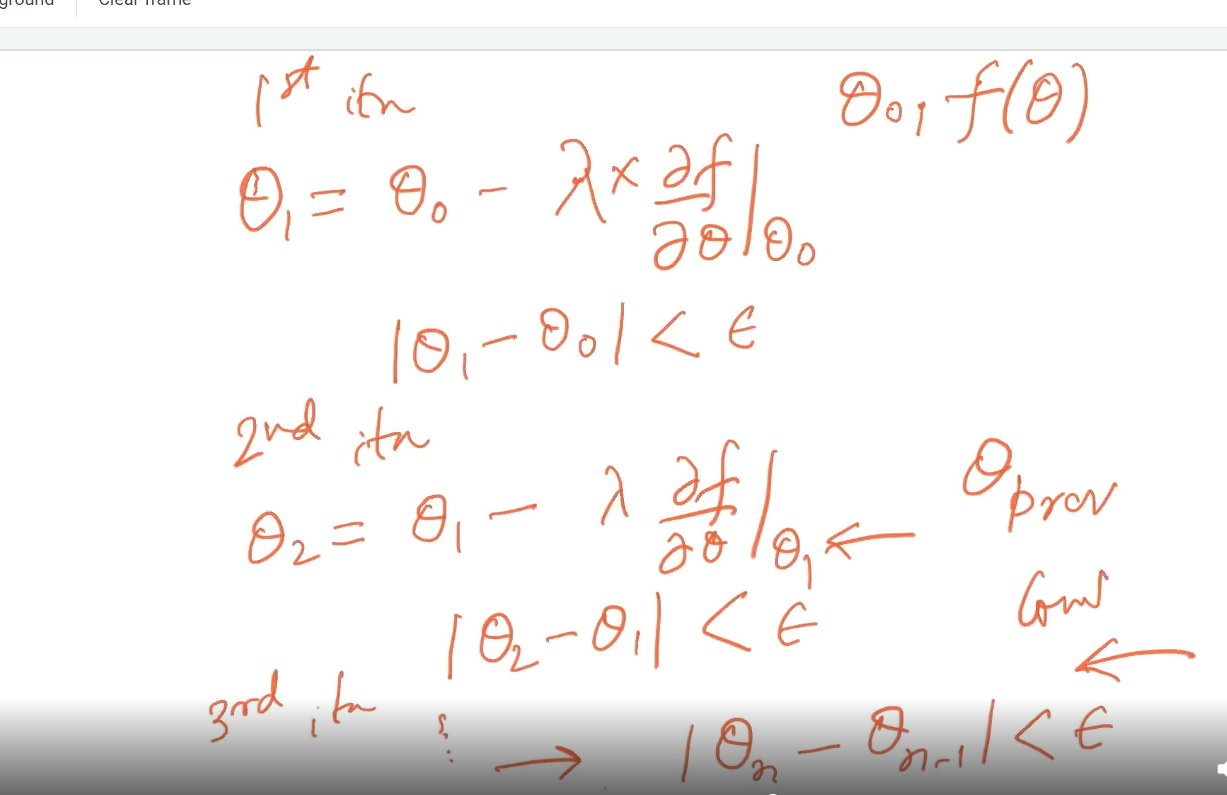 ground Clear frame
1st itn θ₀, f(θ)
θ₁ = θ₀ - λ × ∂f/∂θ|θ₀
|θ₁ - θ₀| < ϵ
2nd itn
θ₂ = θ₁ - λ ∂f/∂θ|θ₁ ← θprev
|θ₂ - θ₁| < ϵ
←
3rd itn ⋮ → |θₙ - θₙ₋₁| < ϵ